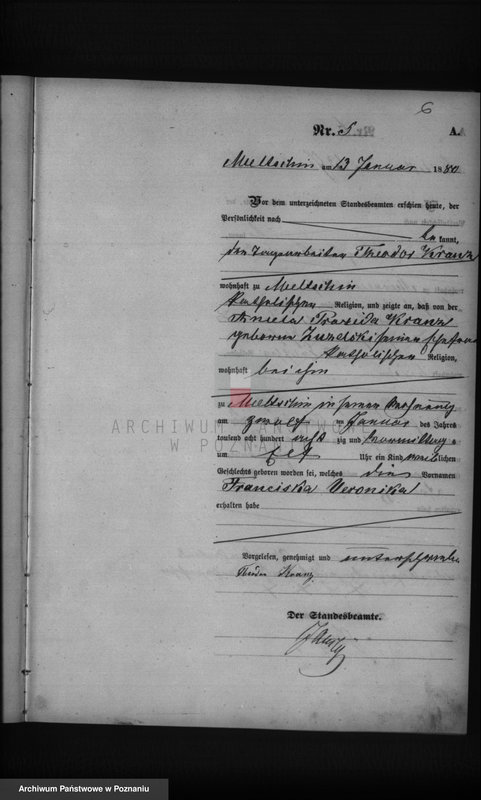 6
Nr. 5
A.
Meltschin am 13 Januar 1880
Vor dem unterzeichneten Standesbeamten erschien heute, der
Persönlichkeit nach
be kannt,
der Tagearbeiter Theodor Kranz
wohnhaft zu Meltschin
katholischer Religion, und zeigte an, daß von der
Kranz
geborene seiner Ehefrau
katholischer Religion,
wohnhaft bei ihm
zu Meltschin in seiner Wohnung
am zwölf ten Januar des Jahres
tausend acht hundert acht zig und Vormittag s
um Elf Uhr ein Kind weiblichen
Geschlechts geboren worden sei, welches die Vornamen
Franciska Veronika
erhalten habe
Vorgelesen, genehmigt und unterschrieben
Theodor Kranz
Der Standesbeamte.
ARCHIWUM PAŃSTWOWE
W POZNANIU
Archiwum Państwowe w Poznaniu